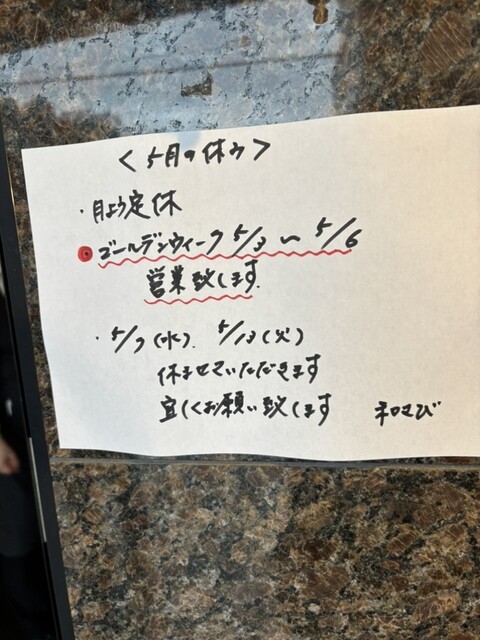 <5月の休み>
・月よう定休
◉ゴールデンウィーク 5/3 〜 5/6
営業致します.
・5/7(水). 5/13(火)
休ませていただきます
宜しくお願い致します 和さび